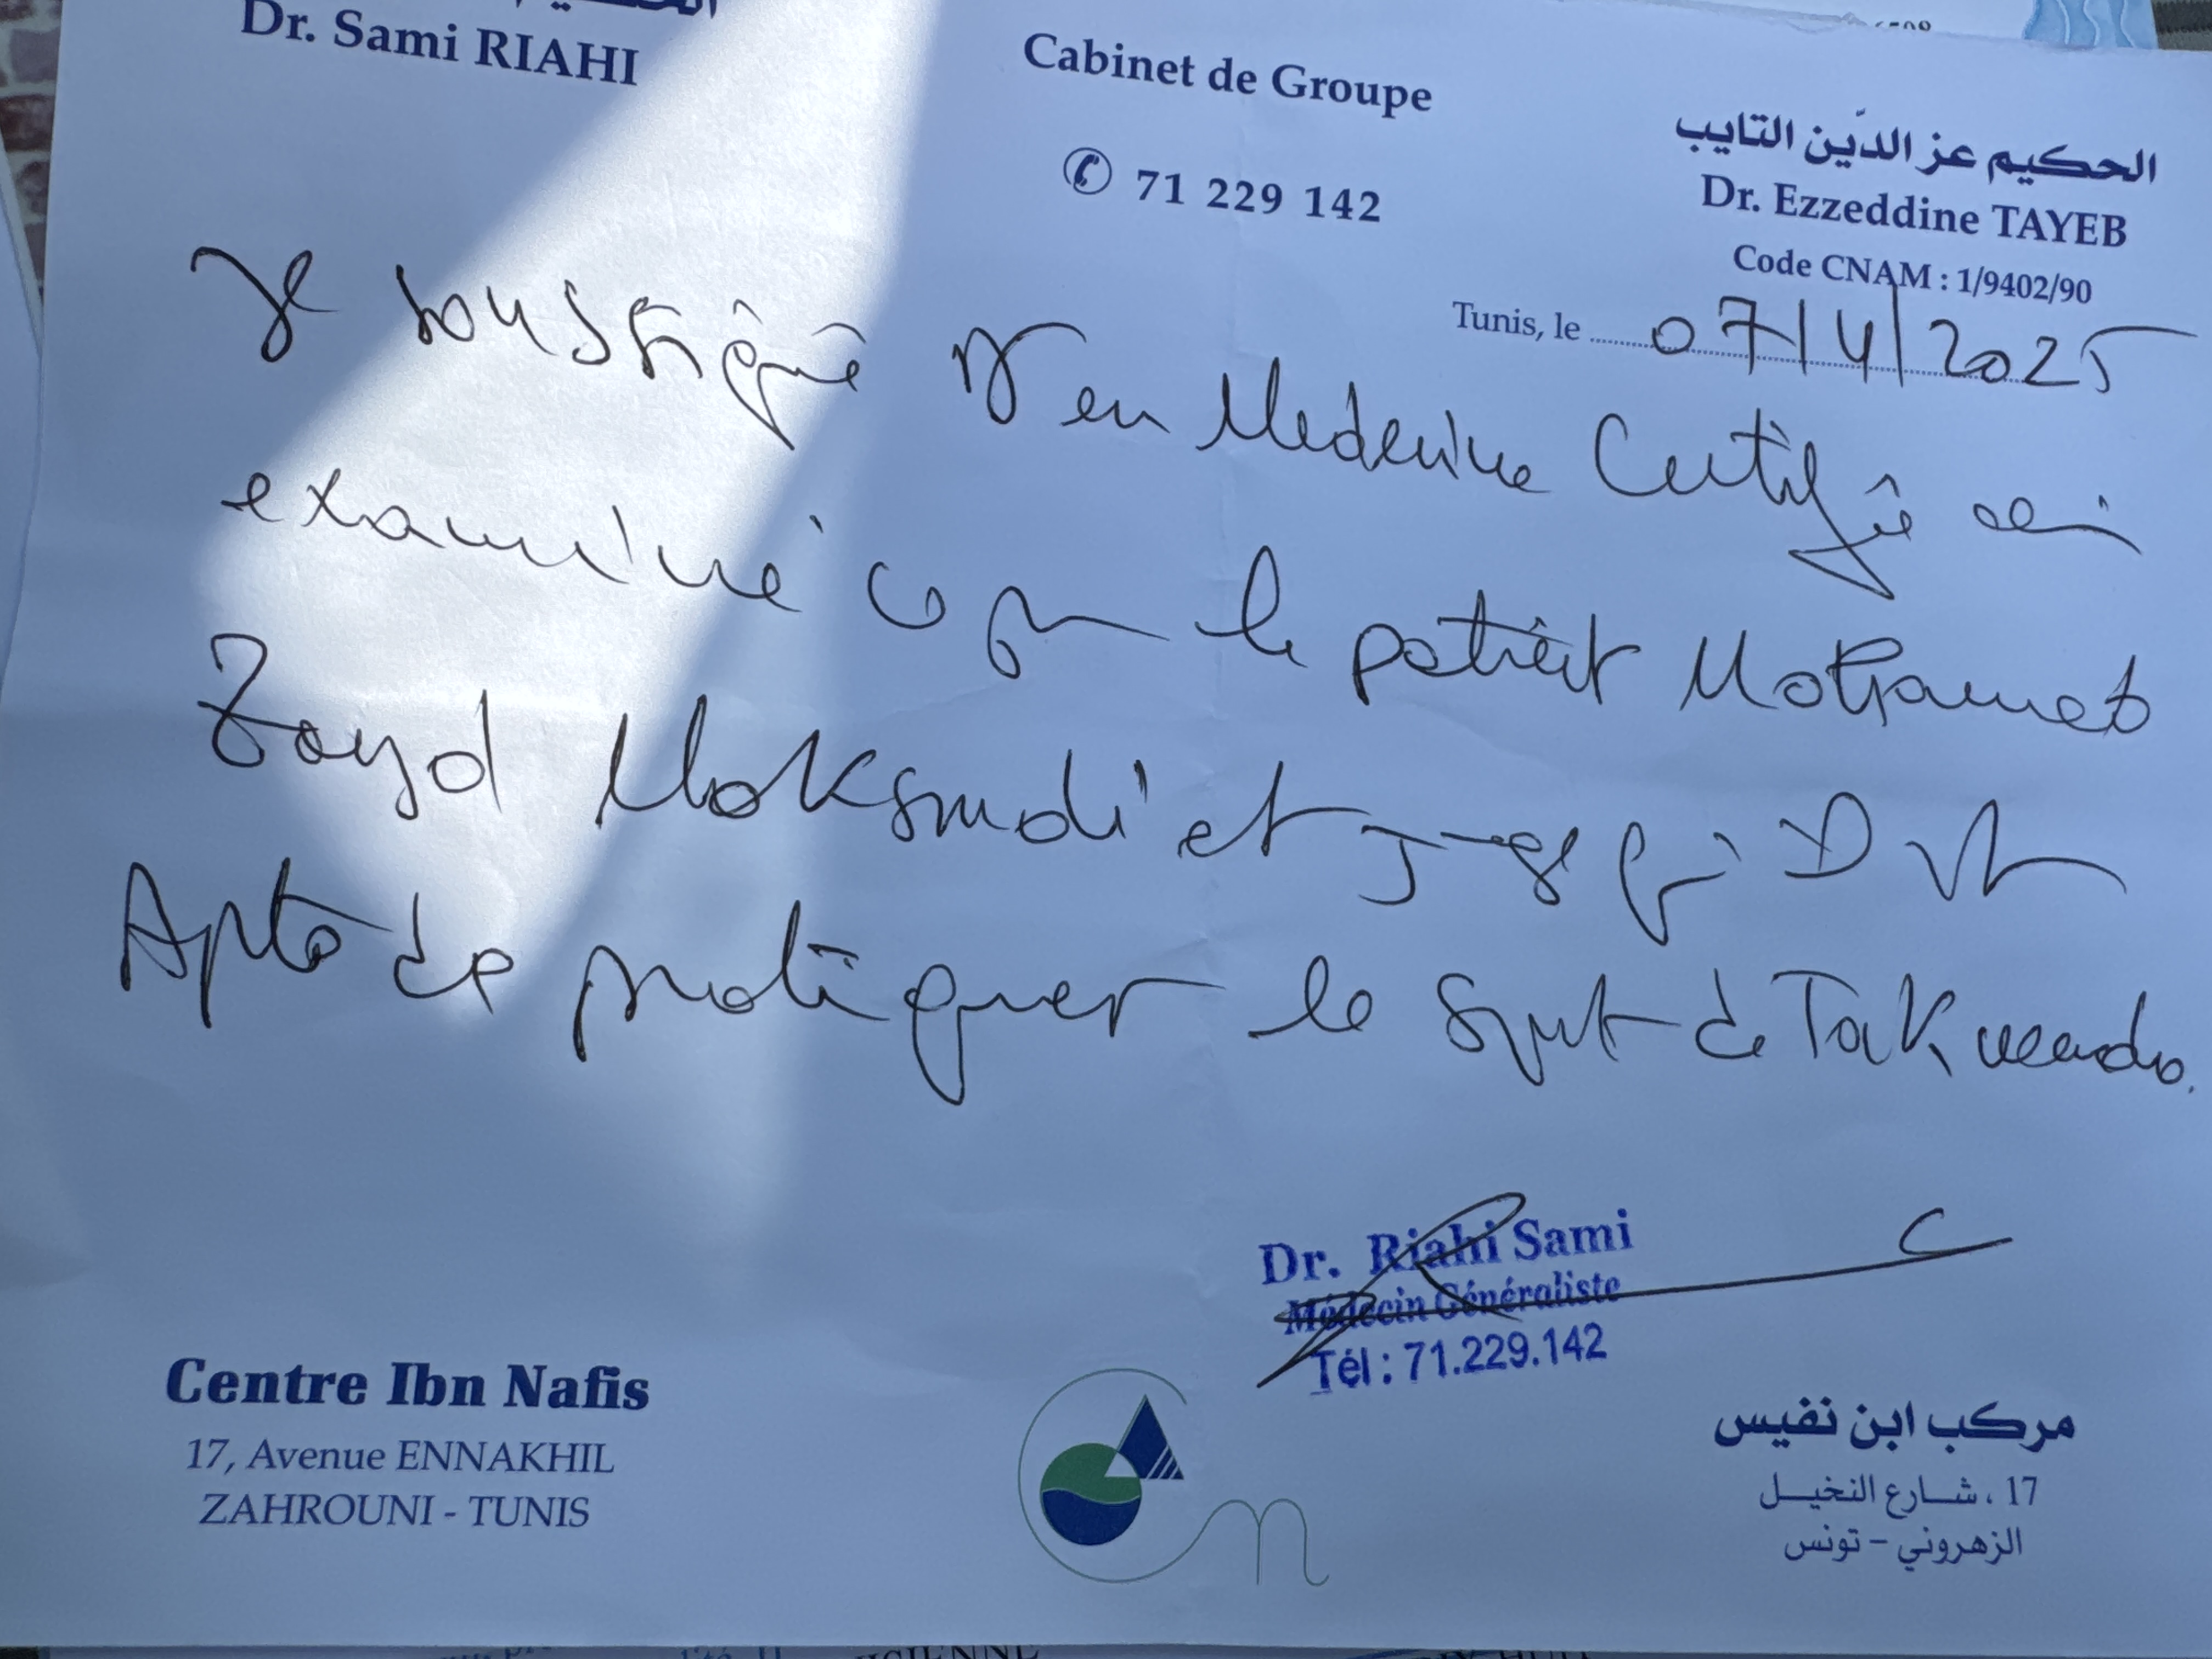 Dr. Sami RIAHI
Cabinet de Groupe
71 229 142
الحكيم عز الدّين التايب
Dr. Ezzeddine TAYEB
Code CNAM : 1/9402/90
Tunis, le 07/4/2025
Je soussigné Dr en Medecine Certifie avoir
examiné ce jour le patient Mohamed
Zayd Moksmdi et juge qu'il est
Apte de pratiquer le sport de Takwendo.
Dr. Riahi Sami
Médecin Généraliste
Tél : 71.229.142
Centre Ibn Nafis
17, Avenue ENNAKHIL
ZAHROUNI - TUNIS
مركب ابن نفيس
17 ، شارع النخيل
الزهروني - تونس